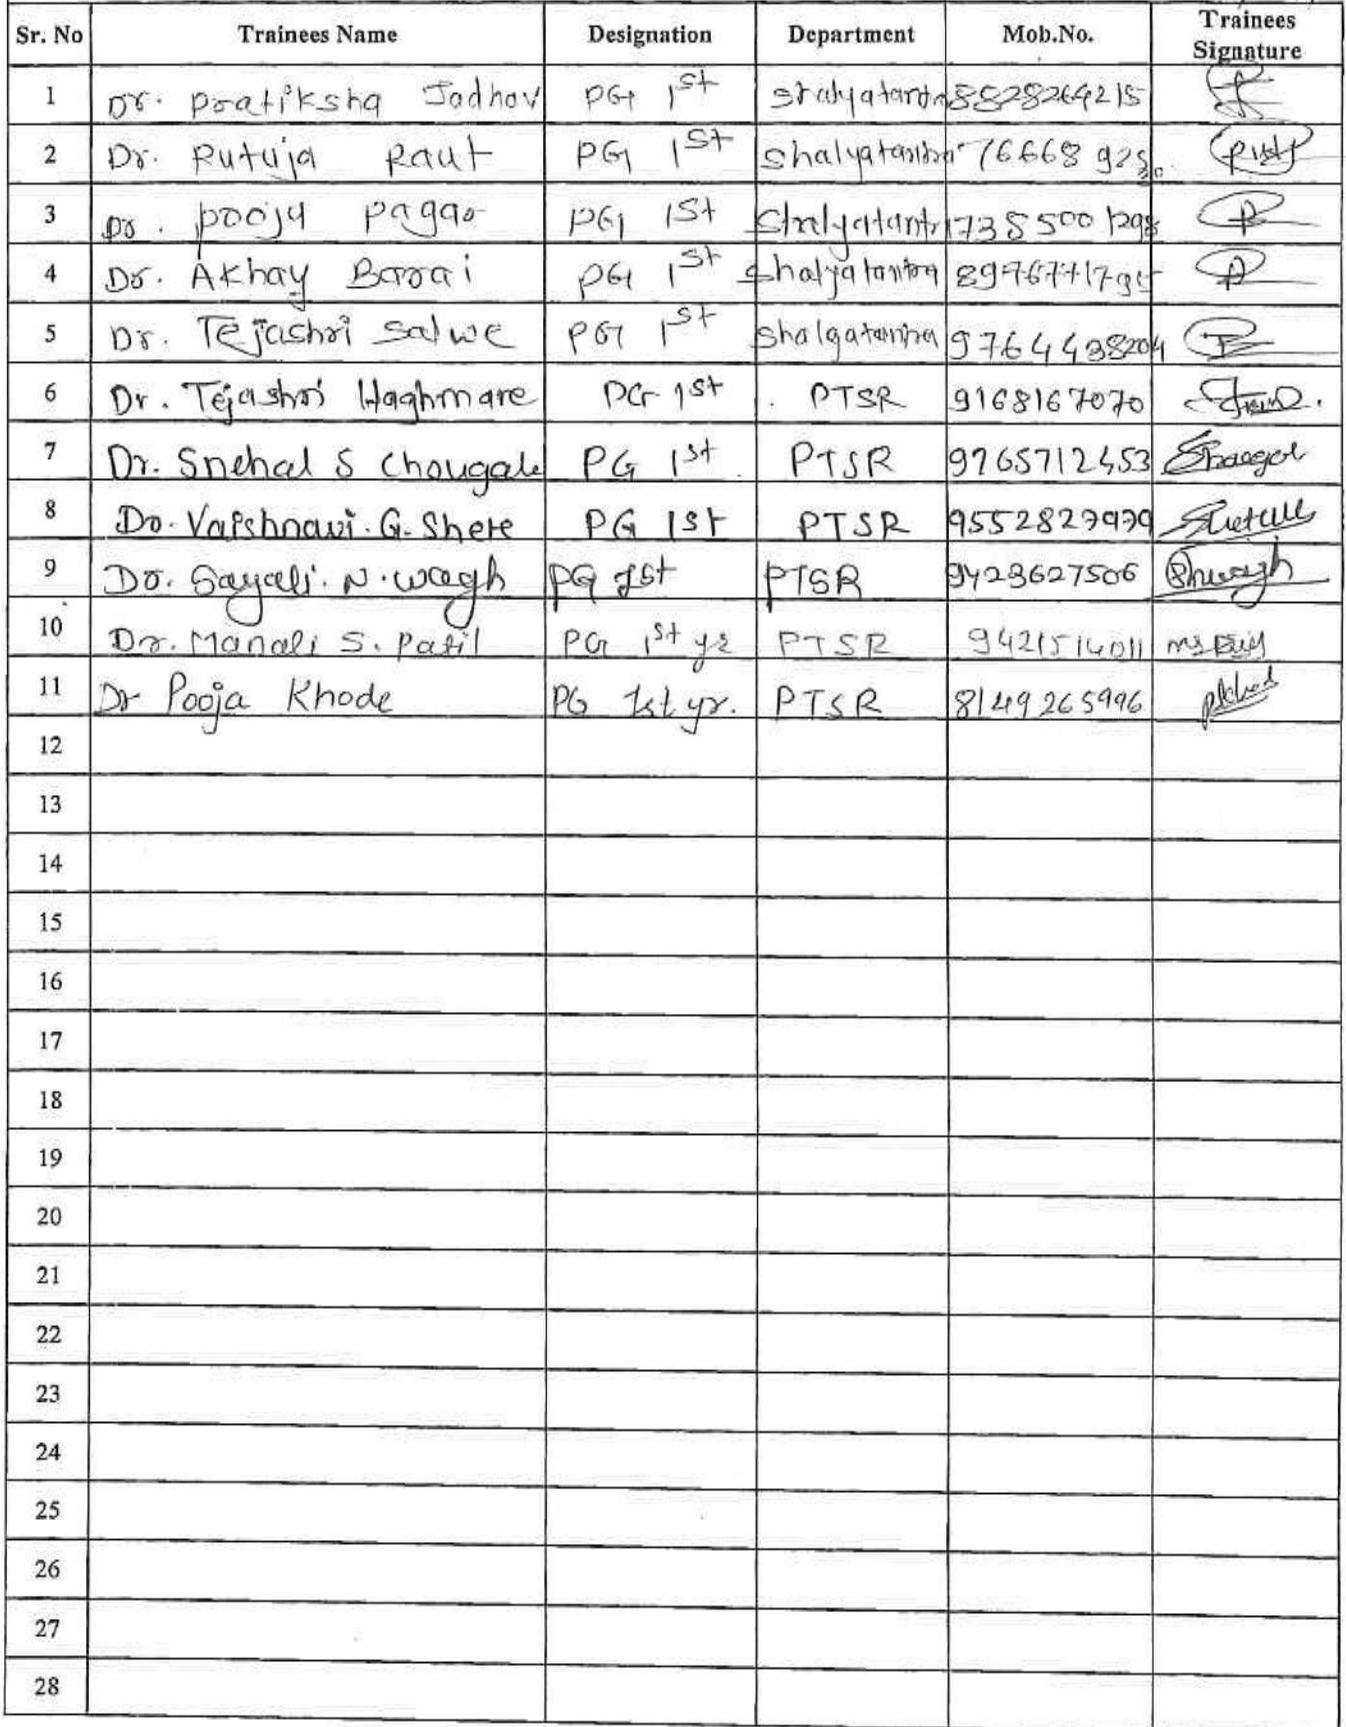 Sr. No Trainees Name Designation Department Mob.No. Trainees Signature
1 Dr. Pratiksha Jadhav PG 1st Shalyatantra 8828264215
2 Dr. Rutuja Raut PG 1st Shalyatantra 76668 925
3 Dr. Pooja Pagar PG 1st Shalyatantra
4 Dr. Akhay Barai PG 1st Shalyatantra
5 Dr. Tejashri Salwe PG 1st Shalyatantra 9764438204
6 Dr. Tejashri Waghmare PG 1st PTSR 9168167070
7 Dr. Snehal S Chougale PG 1st PTSR 9765712453
8 Dr. Vaishnavi. G. Shete PG 1st PTSR 9552827979
9 Dr. Sayali. N. Wagh PG 1st PTSR 9423627506
10 Dr. Manali S. Patil PG 1st yr PTSR 9421514011
11 Dr Pooja Khode PG 1st yr. PTSR 8149265996
12
13
14
15
16
17
18
19
20
21
22
23
24
25
26
27
28